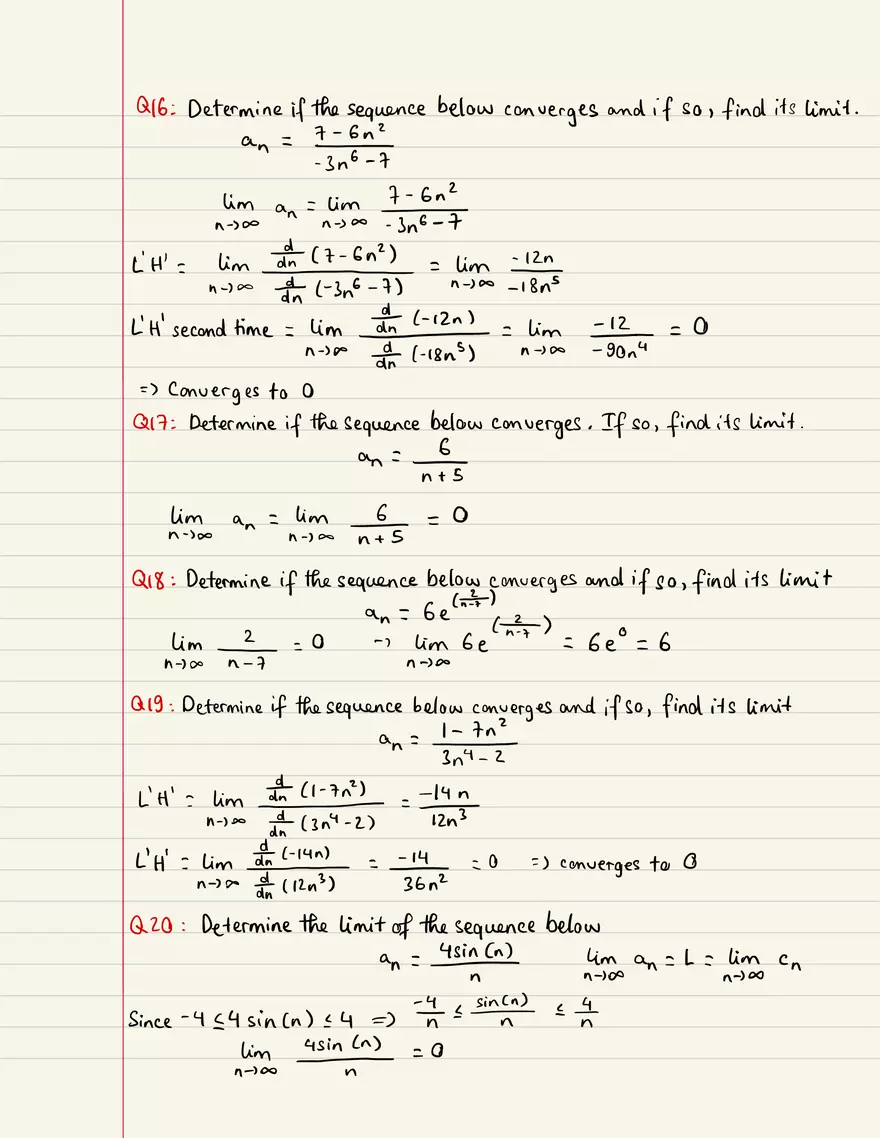 Q16: Determine if the sequence below converges and if so, find its limit.
aₙ = (7 - 6n²)/(-3n⁶ - 7)
lim n→∞ aₙ = lim n→∞ (7 - 6n²)/(-3n⁶ - 7)
L'H' = lim n→∞ (d/dn (7 - 6n²))/(d/dn (-3n⁶ - 7)) = lim n→∞ (-12n)/(-18n⁵)
L'H' second time = lim n→∞ (d/dn (-12n))/(d/dn (-18n⁵)) = lim n→∞ (-12)/(-90n⁴) = 0
=> Converges to 0
Q17: Determine if the sequence below converges. If so, find its limit.
aₙ = 6/(n + 5)
lim n→∞ aₙ = lim n→∞ 6/(n + 5) = 0
Q18: Determine if the sequence below converges and if so, find its limit
aₙ = 6e^(2/(n-7))
lim n→∞ 2/(n-7) = 0 → lim n→∞ 6e^(2/(n-7)) = 6e⁰ = 6
Q19: Determine if the sequence below converges and if so, find its limit
aₙ = (1 - 7n²)/(3n⁴ - 2)
L'H' = lim n→∞ (d/dn (1-7n²))/(d/dn (3n⁴-2)) = (-14n)/(12n³)
L'H' = lim n→∞ (d/dn (-14n))/(d/dn (12n³)) = (-14)/(36n²) = 0 => converges to 0
Q20: Determine the limit of the sequence below
aₙ = 4sin(n)/n lim n→∞ aₙ = L = lim n→∞ cₙ
Since -4 ≤ 4 sin(n) ≤ 4 => -4/n ≤ sin(n)/n ≤ 4/n
lim n→∞ 4sin(n)/n = 0